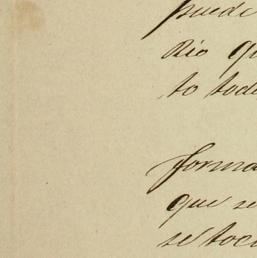 puede
Rio qu
to toda
forma
que se
se toca